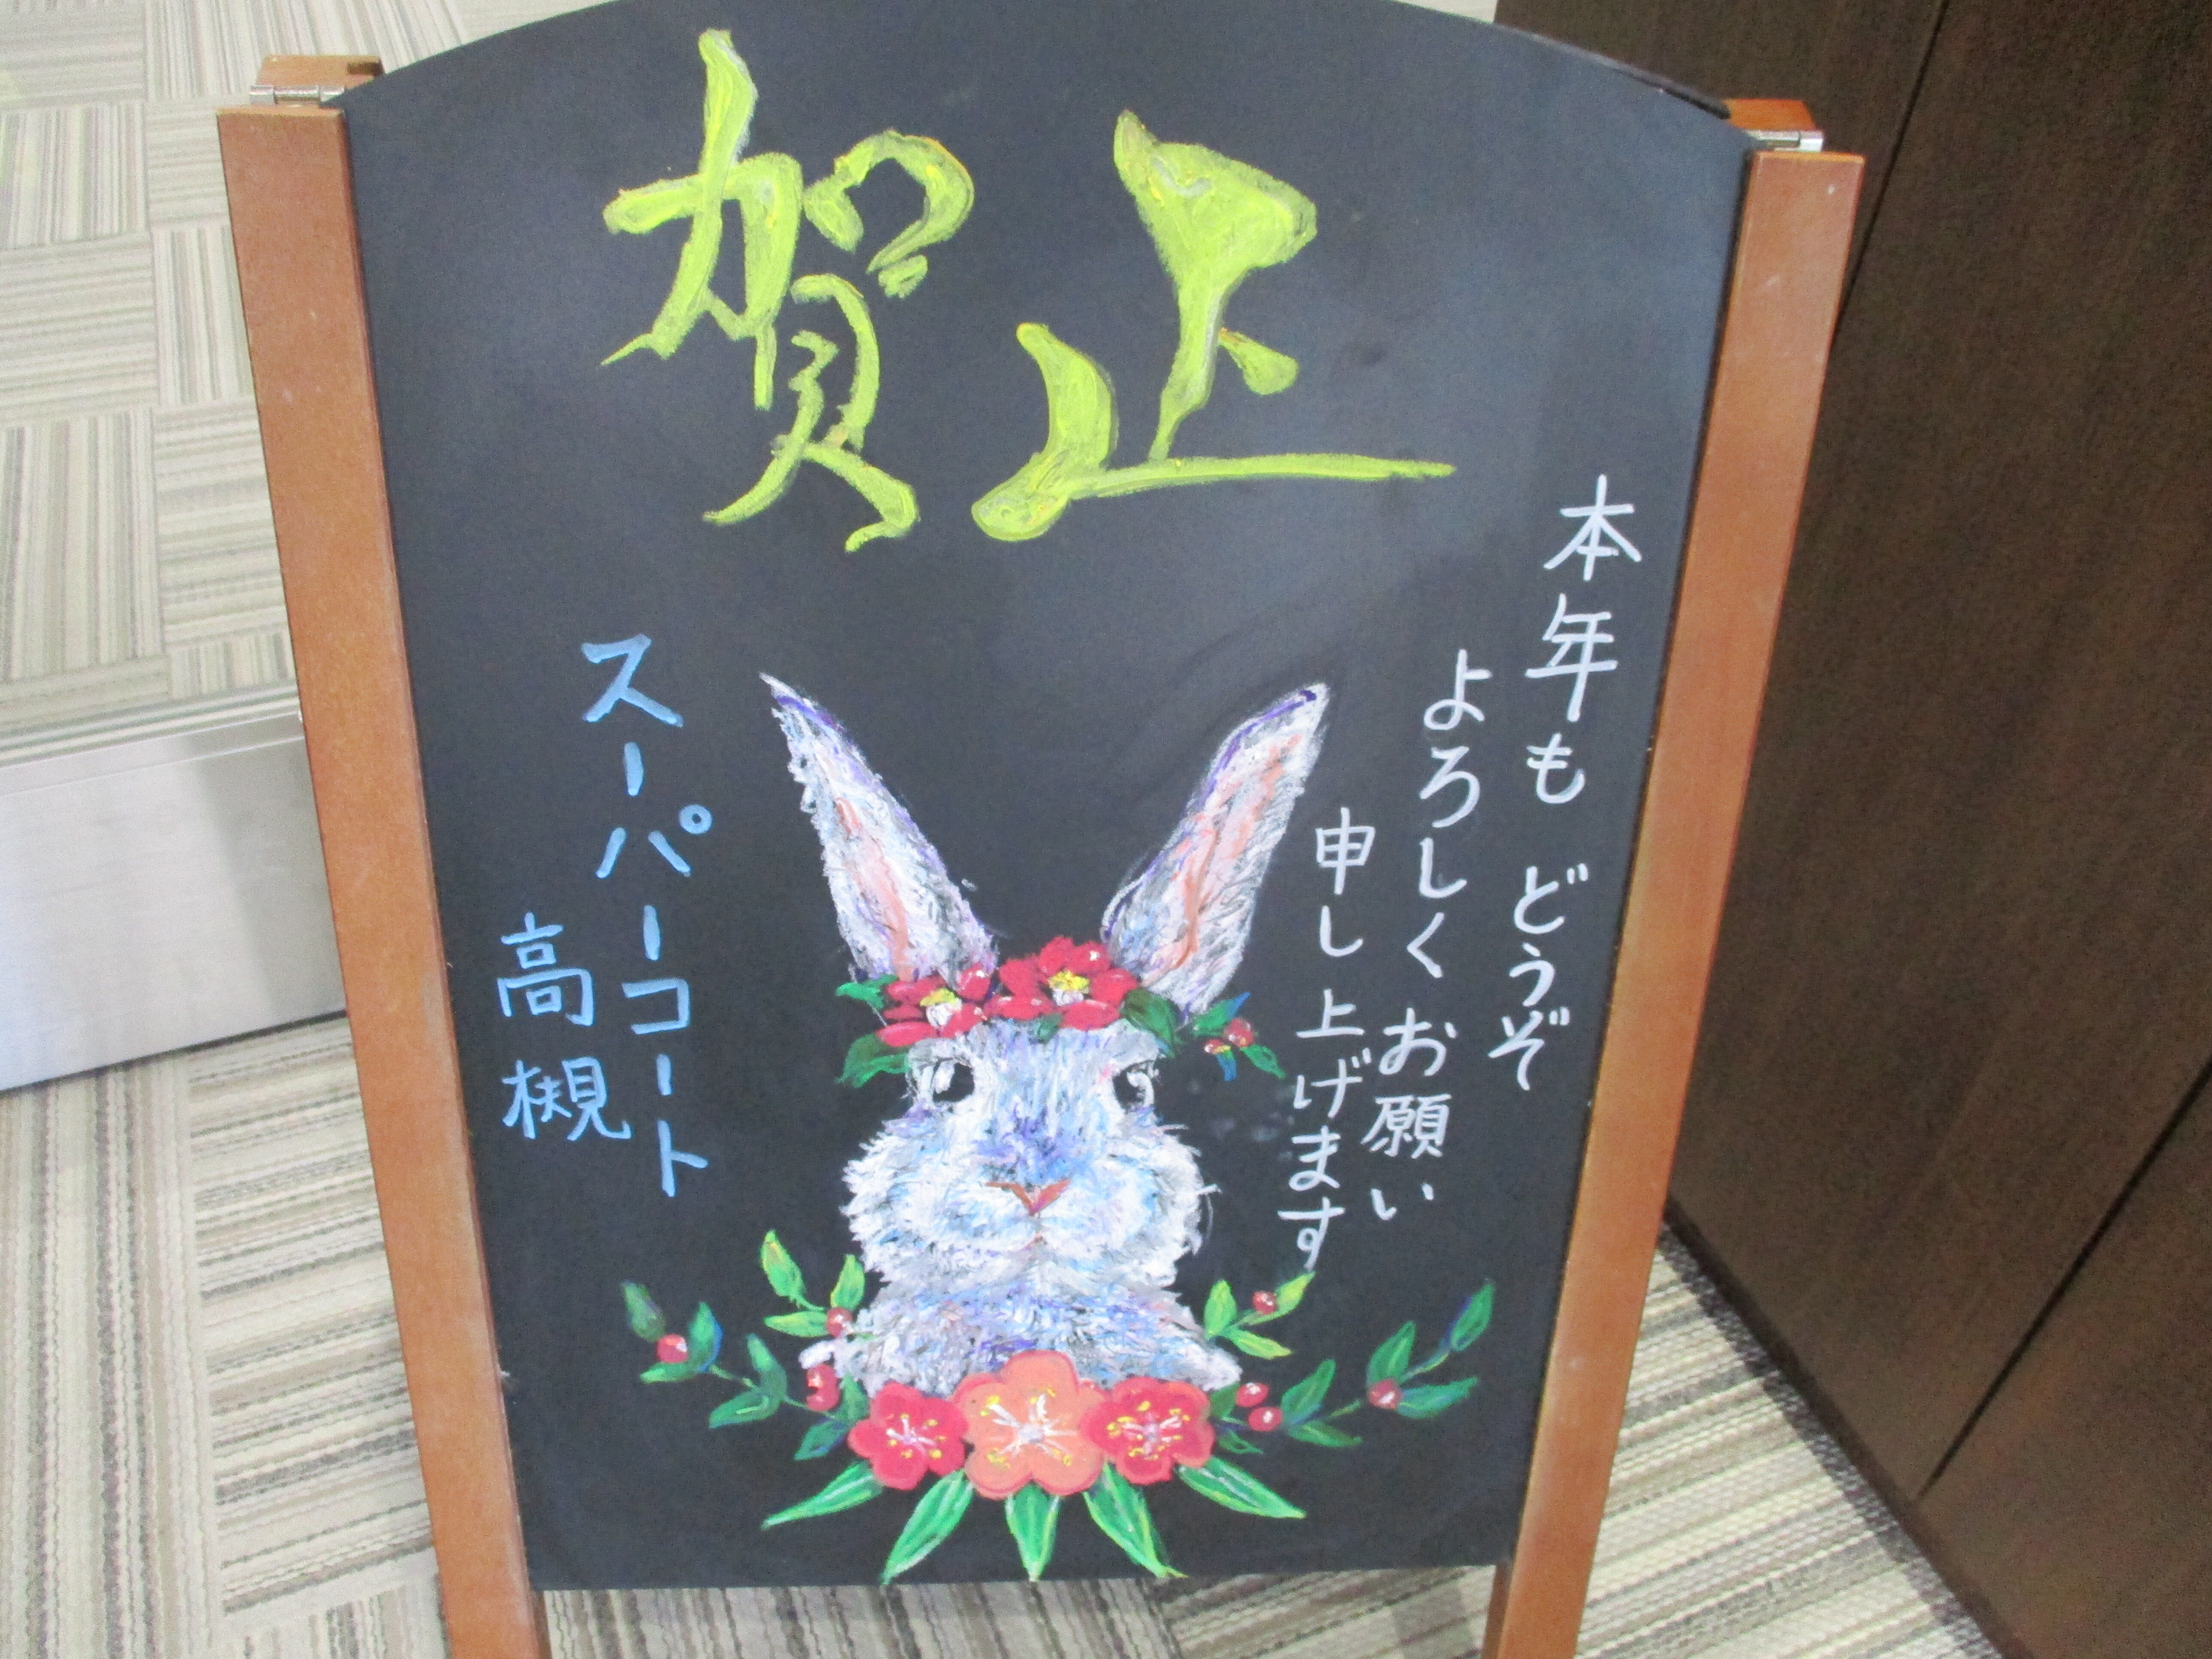 賀正
本年も どうぞ
よろしく お願い
申し上げます
スーパーコート
高槻